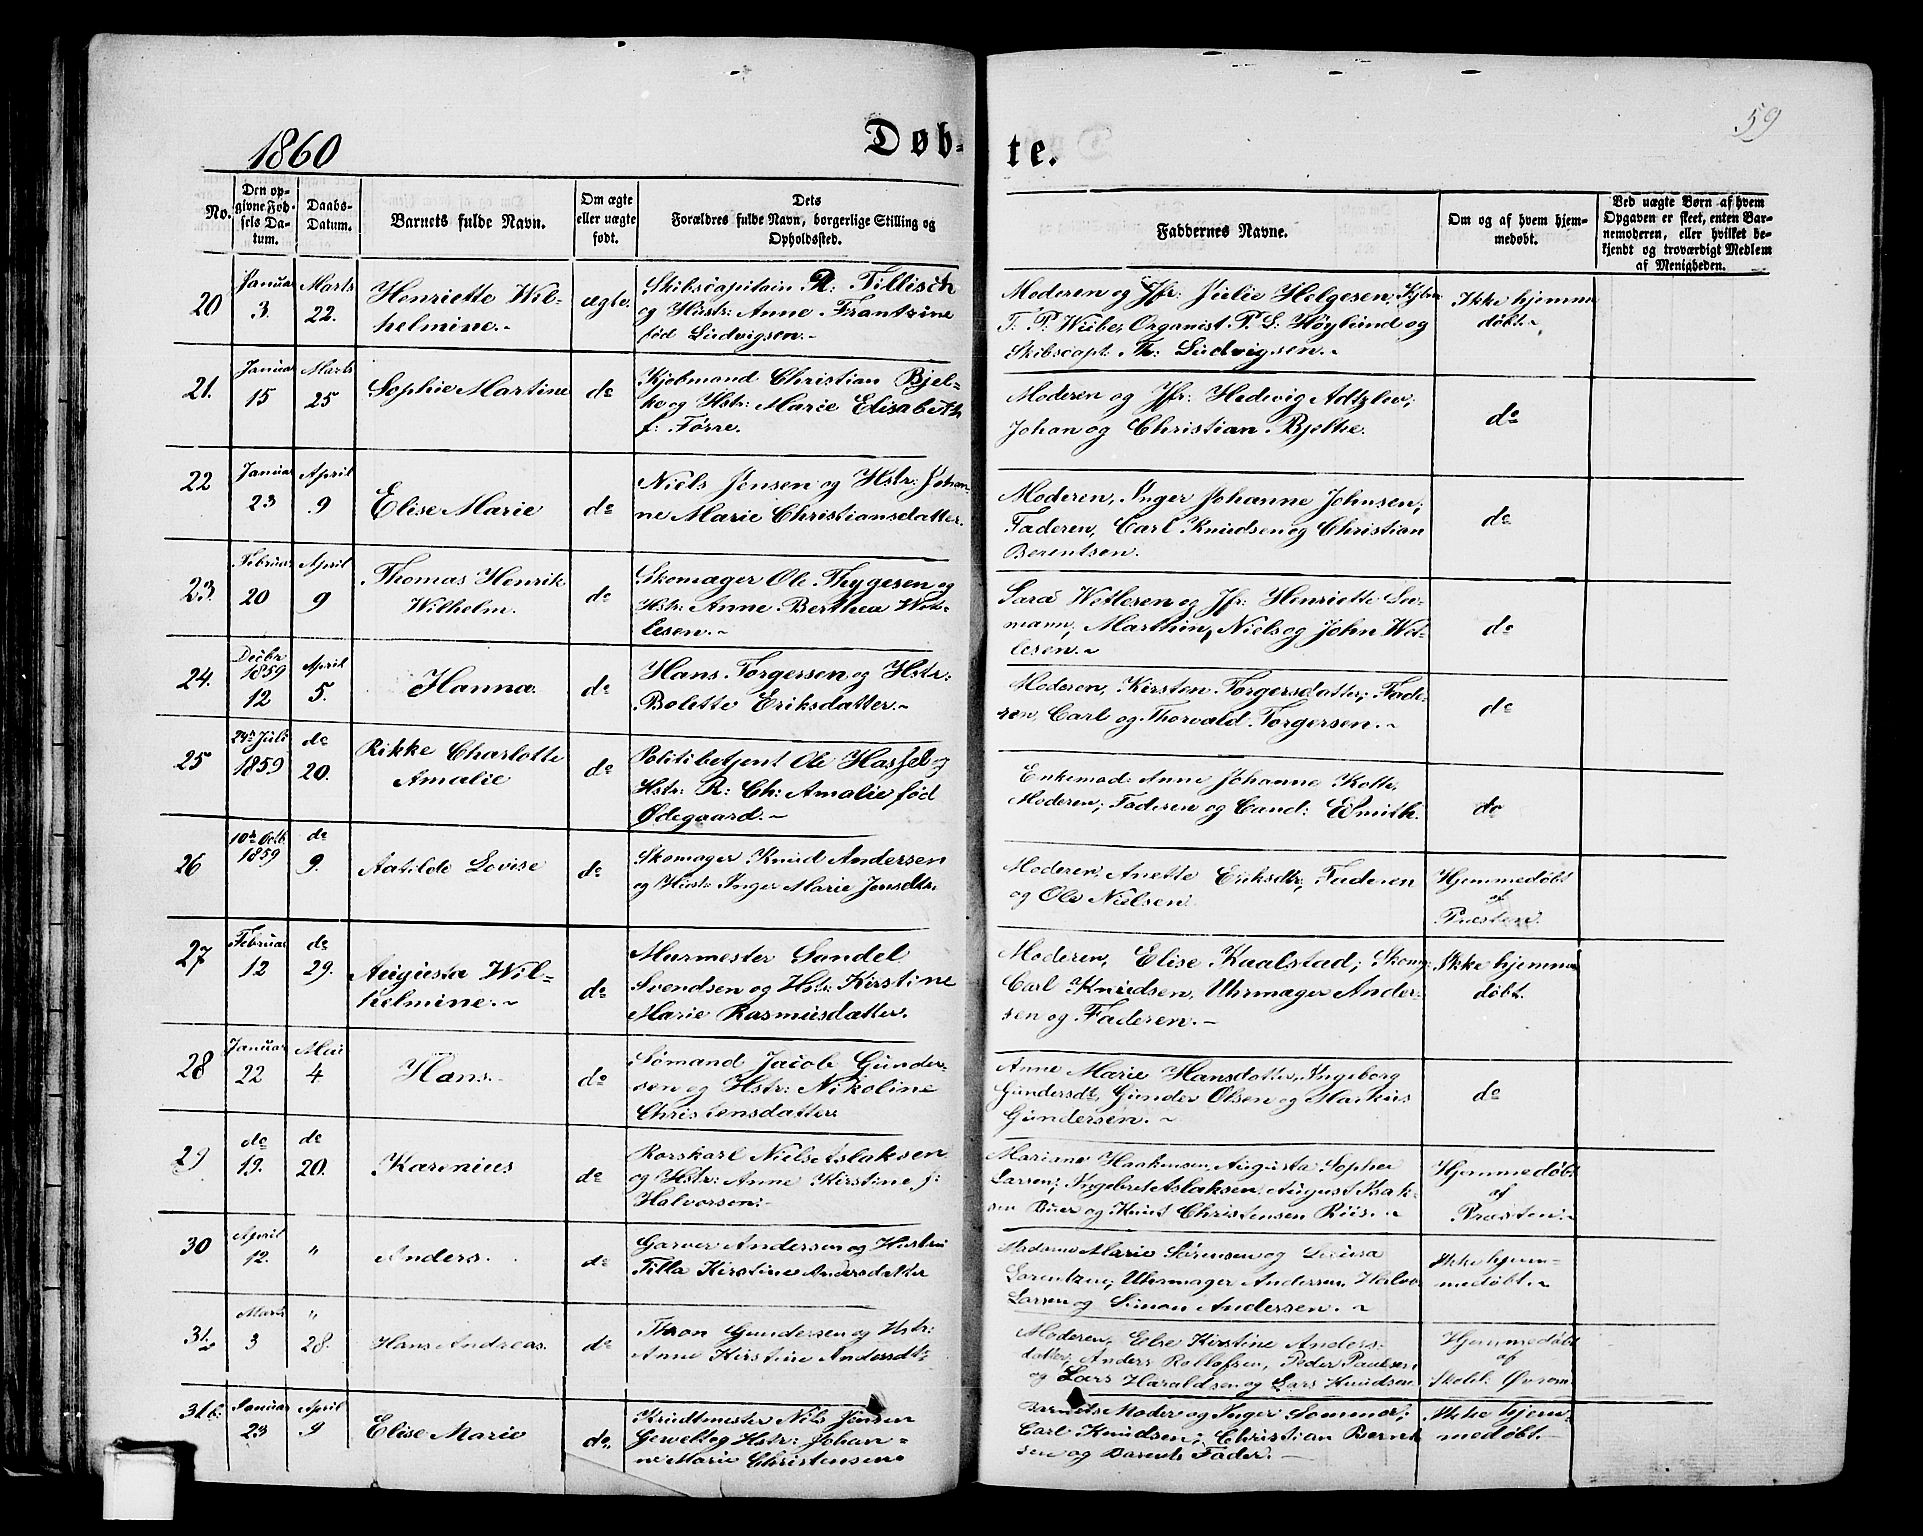 59
1860
Døb-
te.
No.
Den op-
givne Fød-
sels Da-
tum.
Daabs-
Datum.
Barnets fulde Navn.
Om ægte
eller uægte
født.
Dets
Forældres fulde Navn, borgerlige Stilling og
Opholdssted.
Faddernes Navne.
Om og af hvem hjem-
medøbt.
Ved uægte Børn af hvem
Opgaven er skeet, enten Bar-
nemoderen, eller hvilket be-
kjendt og troværdigt Medlem
af Menigheden.
20
Januar
3.
Marts
22.
Henriette Wil-
helmine.
ægte.
Skibscapitain R: Tillisch
og Hustr: Anne Frantzine
fød Ludvigsen.
Moderen og Jfr: Julie Helgesen,
T. P. Wiibe, Organist P. S. Høylund og
Skibscapt. Th: Ludvigsen.
Ikke hjemme
døbt.
21.
Januar
15
Marts
25
Sophie Martine
do
Kjøbmand Christian Bjel-
ke og Hstr: Marie Elisabeth
f: Førre.
Moderen og Jfr: Hedevig Adtzlev;
Johan og Christian Bjelke.
do
22
Januar
23
April
9
Elise Marie
do
Niels Jensen og Hstr: Johan-
ne Marie Christiansdatter.
Moderen, Inger Johanne Johnsen;
Faderen, Carl Knudsen og Christian
Berentsen.
do
23.
Februar
20
April
9
Thomas Henrik
Wilhelm.
do
Skomager Ole Thygesen og
Hstr: Anne Berthea Wet-
lesen.
Sara Wetlesen og Jfr: Henriette See-
mann; Marthin, Niels og John Wet-
lesen.
do
24.
Decbr
1859
12
April
5.
Hanna.
do
Hans Torgersen og Hstr:
Bolette Eriksdatter.
Moderen, Kirsten Torgersdatter; Fade-
ren, Carl og Thorvald Torgersen.
do
25
24de Juli
1859
do
20.
Rikke Charlotte
Amalie
do
Politibetjent Ole Hassel og
Hstr: R: Ch: Amalie fød
Ødegaard.
Enkemad: Anne Johanne Kolt,
Moderen; Faderen og Cand: Smith.
do
26
10de Octb.
1859
do
9.
Aatilde Lovise
do
Skomager Knud Andersen
og Hustr: Inger Marie Jensdtr.
Moderen, Anette Eriksdtr; Faderen
og Ole Nielsen.
Hjemmedøbt
af
Præsten.
27
Februar
12
do
29.
Augusta Wil-
helmine.
do
Murmester Sandel
Svendsen og Hstr: Kirstine
Marie Rasmusdatter.
Moderen, Elise Kaalstad; Skom:
Carl Knudsen, Uhrmager Ander-
sen og Faderen.
Ikke hjemme
døbt.
28
Januar
22
Mai
4
Hans.
do
Sømand Jacob Gunder-
sen og Hstr: Nikoline
Christensdatter.
Anne Marie Hansdatter, Ingeborg
Gundersdtr, Gunder Olsen og Markus
Gundersen.
do
29
do
19.
do
20.
Karenius
do
Rorskarl Niels Aslaksen
og Hstr: Anne Kirstine f:
Halvorsen.
Mariane Haakensen, Augusta Sophie
Larsen; Ingebret Aslaksen, August Isak-
sen Buer og Knut Christensen Riis.
Hjemmedøbt
af
Præsten.
30
April
12.
"
Anders.
do
Garver Andersen og Hustru
Tilla Kirstine Andersdatter
Madame Marie Sørensen og Louisa
Lorentzen; Uhrmager Andersen, Halvor
Larsen og Simon Andersen.
Ikke hjem-
medøbt.
31.
Marts
3
"
28.
Hans Andreas.
do
Thron Gundersen og Hstr:
Anne Kirstine Andersdtr
Moderen, Else Kirstine Anders-
datter, Anders Rollefsen, Peder Paulsen
og Lars Haraldsen og Lars Knudsen
Hjemmedøbt
af
Skoll. Øvrom
31b.
Januar
23
April
9
Elise Marie
do.
Krudtmester Nils Jensen
Gevelt og Hstr: Johan-
ne Marie Christensen
Barnets Moder og Inger Sommer;
Carl Knudsen; Christian Bernt-
sen og Barnets Fader.
Ikke hjem-
medøbt.